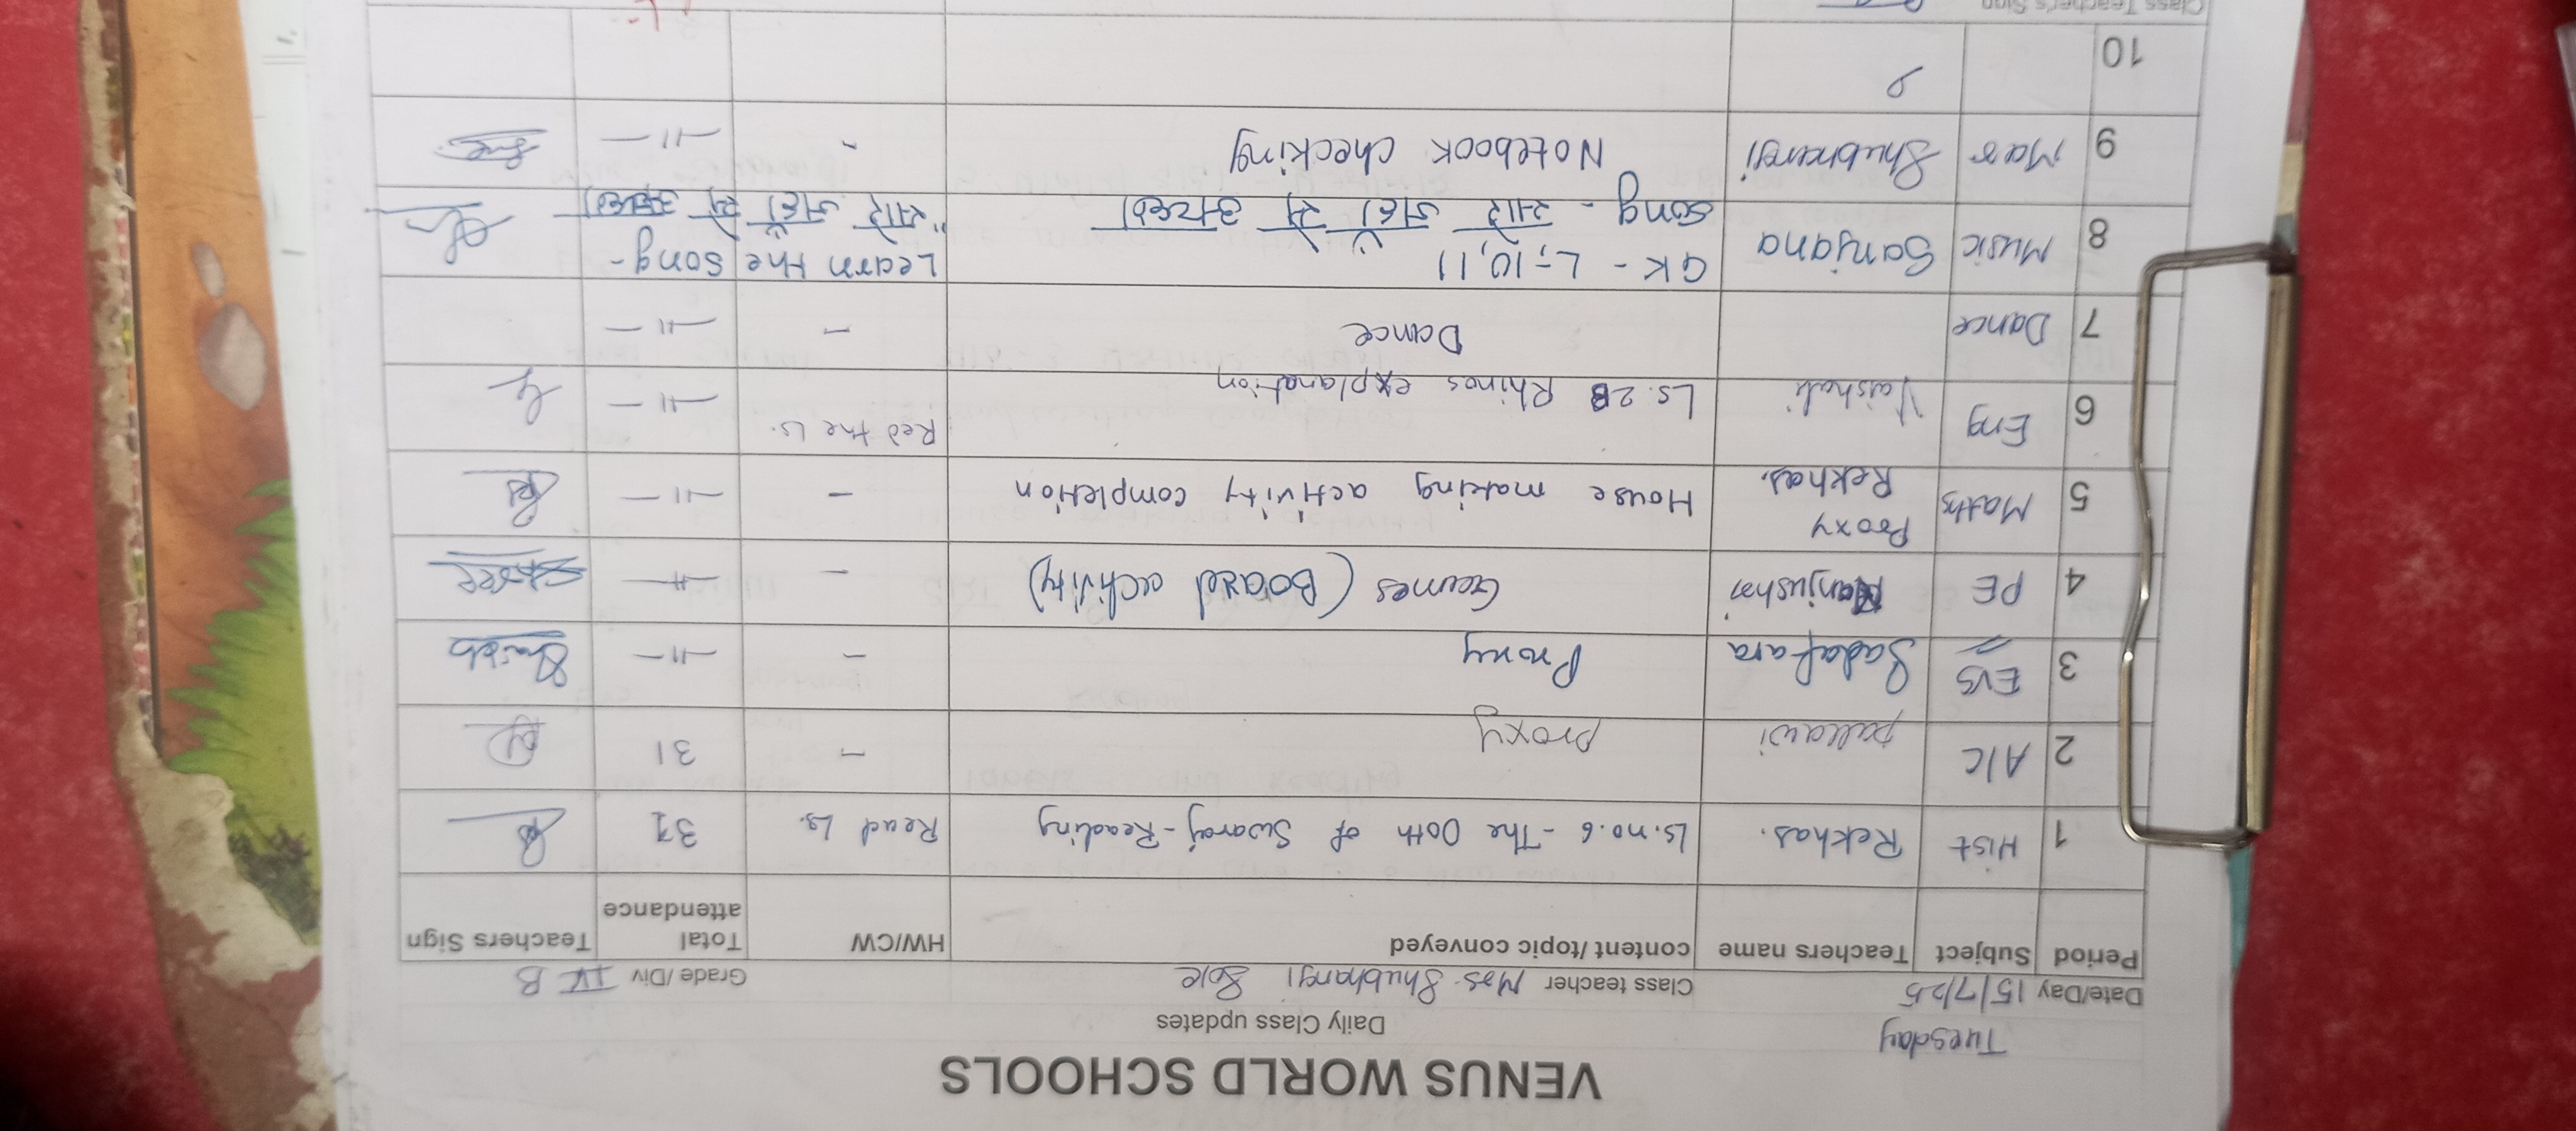 VENUS WORLD SCHOOLS
Daily Class updates
Tuesday
Date/Day 15/7/25 Class teacher Mrs. Shubhangi Sole Grade /Div IV B
Period Subject Teachers name content /topic conveyed HW/CW Total attendance Teachers Sign
1 Hist Rekhas. Ls.no.6 - The Oath of Swaraj - Reading Read Ls. 31
2 A/C pallawi proxy - 31
3 EVS Sadafara Proxy - -11-
4 PE Manjusha Games (Board activity) - -11-
5 Maths Proxy Rekhas. House making activity completion - -11-
6 Eng Vaishali Ls. 2B Rhinos explanation Red the Ls. -11-
7 Dance Dance - -11-
8 Music Sanjana GK - L-10,11 Learn the song -
song -
9 Mar Shubhangi Notebook checking - -11-
10
Class Teacher's Sign